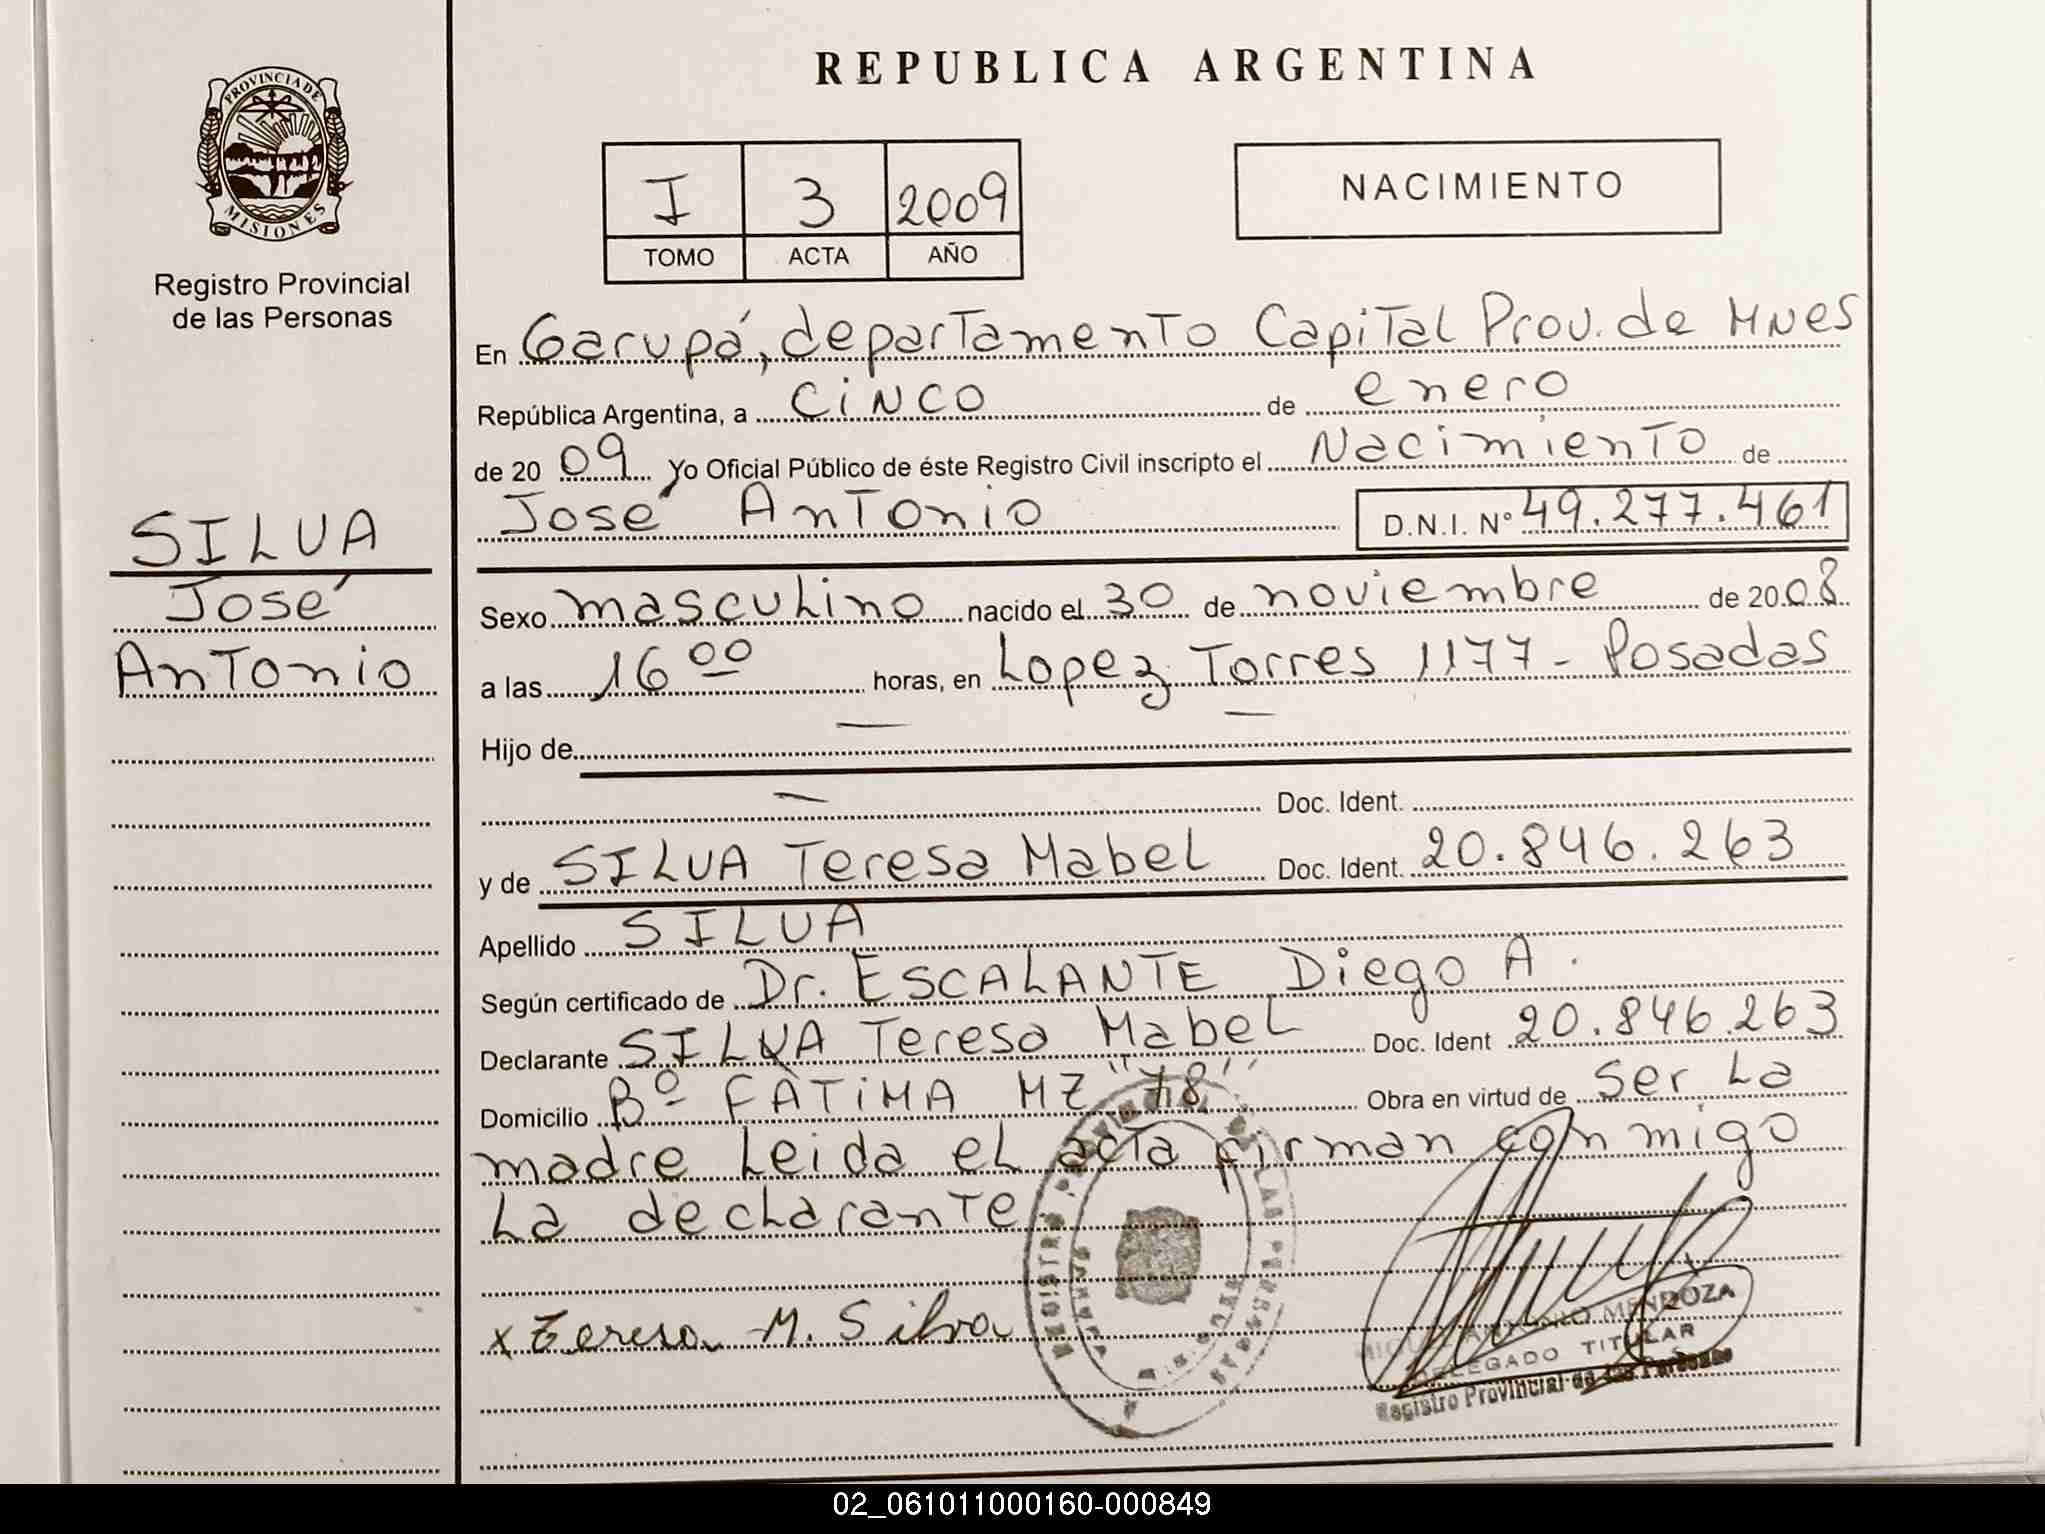 PROVINCIA DE
MISIONES
Registro Provincial
de las Personas
SILVA
José
Antonio
REPUBLICA ARGENTINA
I 3 2009
TOMO ACTA AÑO
NACIMIENTO
En Garupá, departamento Capital Prov. de Mnes
República Argentina, a cinco de enero
de 2009 Yo Oficial Público de éste Registro Civil inscripto el Nacimiento de
José Antonio D.N.I. Nº 49.277.461
Sexo masculino nacido el 30 de noviembre de 2008
a las 16 00 horas, en Lopez Torres 1177 - Posadas
Hijo de — —
— Doc. Ident.
y de SILVA Teresa Mabel Doc. Ident. 20.846.263
Apellido SILVA
Según certificado de Dr. ESCALANTE Diego A.
Declarante SILVA Teresa Mabel Doc. Ident 20.846.263
Domicilio Bº FÀTIMA MZ "78" Obra en virtud de ser la
madre leida el acta firman conmigo
la declarante.
x Teresa M. Silva
REGISTRO DE LAS PERSONAS
ANTONIO MENDOZA
DELEGADO TITULAR
Registro Provincial de las Personas
02_061011000160-000849